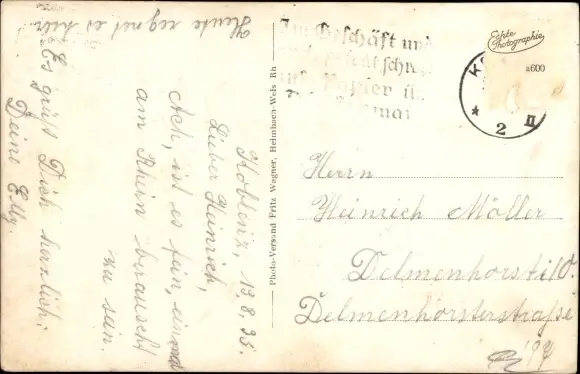 Koblenz, 19.8.35.
Lieber Heinrich,
Ach, ist es fein, einmal
am Rhein berauscht
zu sein.
Es grüßt Dich herzlich,
Deine Elly.
Heute regnet es hier.
Photo-Versand Fritz Wagner, Heimbach-Weis Rh
Im Geschäft und
Papier
Echte
Photographie
a600
K
* 2 II
Herrn
Heinrich Möller
Delmenhorst i/O.
Delmenhorsterstraße